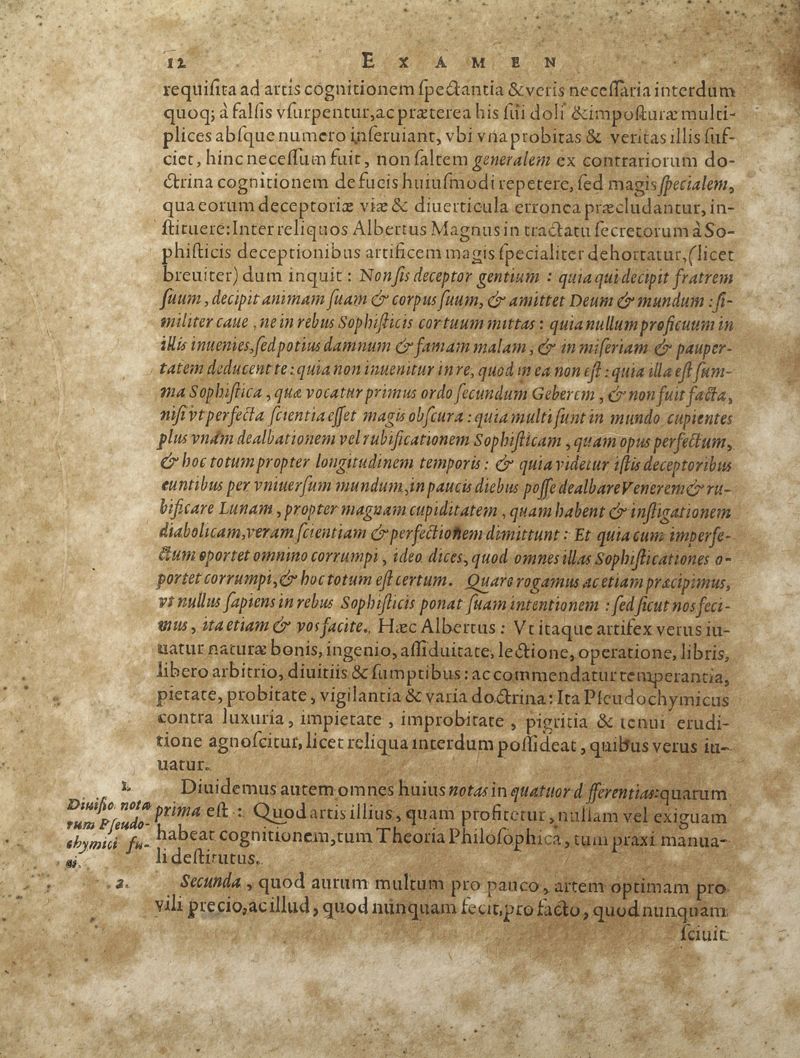 12 EXAMEN
requiſita ad artis cognitionem ſpectantia & veris neceſſaria interdum
quoq; à falſis vſurpentur, ac præterea his ſui doli & impoſturæ multi-
plices abſque numero inſeruiant, vbi vna probitas & veritas illis ſuf-
ficit, hinc neceſſum fuit, non ſaltem generalem ex contrariorum do-
ctrina cognitionem de fucis huiuſmodi repetere, ſed magis ſpecialem,
qua eorum deceptoriæ viæ & diuerticula erronea præcludantur, in-
ſtituere: Inter reliquos Albertus Magnus in tractatu ſecretorum à So-
phiſticis deceptionibus artificem magis ſpecialiter dehortatur, (licet
breuiter) dum inquit : Non ſis deceptor gentium : quia qui decipit fratrem
ſuum, decipit animam ſuam & corpus ſuum, & amittet Deum & mundum : ſi-
militer caue, ne in rebus Sophiſticis cor tuum mittas : quia nullum proficuum in
illis inuenies, ſed potius damnum & famam malam, & in miſeriam & pauper-
tatem deducent te : quia non inuenitur in re, quod in ea non eſt : quia illa eſt ſum-
ma Sophiſtica, quæ vocatur primus ordo ſecundum Geberem, & non fuit facta,
niſi vt perfecta ſcientia eſſet magis obſcura : quia multi ſunt in mundo cupientes
plus vnam dealbationem vel rubificationem Sophiſticam, quam opus perfectum,
& hoc totum propter longitudinem temporis : & quia videtur iſtis deceptoribus
euntibus per vniuerſum mundum, in paucis diebus poſſe dealbare Venerem & ru-
bificare Lunam, propter magnam cupiditatem, quam habent & inſtigationem
diabolicam, veram ſcientiam & perfectionem dimittunt : Et quia cum imperfe-
ctum oportet omnino corrumpi, ideo dices, quod omnes illas Sophiſticationes o-
portet corrumpi, & hoc totum eſt certum. Quare rogamus ac etiam præcipimus,
vt nullus ſapiens in rebus Sophiſticis ponat ſuam intentionem : ſed ſicut nos feci-
mus, ita etiam & vos facite. Hæc Albertus : Vt itaque artifex verus iu-
uatur naturæ bonis, ingenio, aſſiduitate, lectione, operatione, libris,
libero arbitrio, diuitiis & ſumptibus : ac commendatur temperantia,
pietate, probitate, vigilantia & varia doctrina: Ita Pſeudochymicus
contra luxuria, impietate, improbitate, pigritia & tenui erudi-
tione agnoſcitur, licet reliqua interdum poſſideat, quibus verus iu-
uatur.
1. Diuidemus autem omnes huius notas in quatuor differentias: quarum
Diuiſio nota- prima eſt : Quod artis illius, quam profitetur, nullam vel exiguam
rum Pſeudo- habeat cognitionem, tum Theoria Philoſophica, tum praxi manua-
chymici fu- li deſtitutus.
gi.
2. Secunda, quod aurum multum pro pauco, artem optimam pro
vili precio, ac illud, quod nunquam fecit, pro facto, quod nunquam
ſciuit